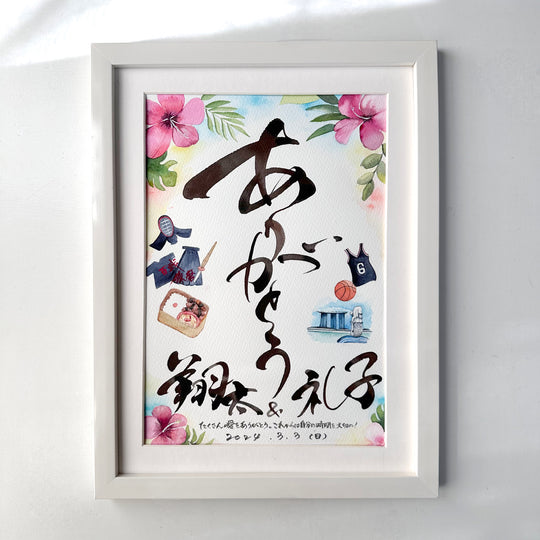 ありがとう
6
翔太 & 礼子
たくさん愛をありがとう。これからは自分の時間を大切に！
2024.3.3(日)